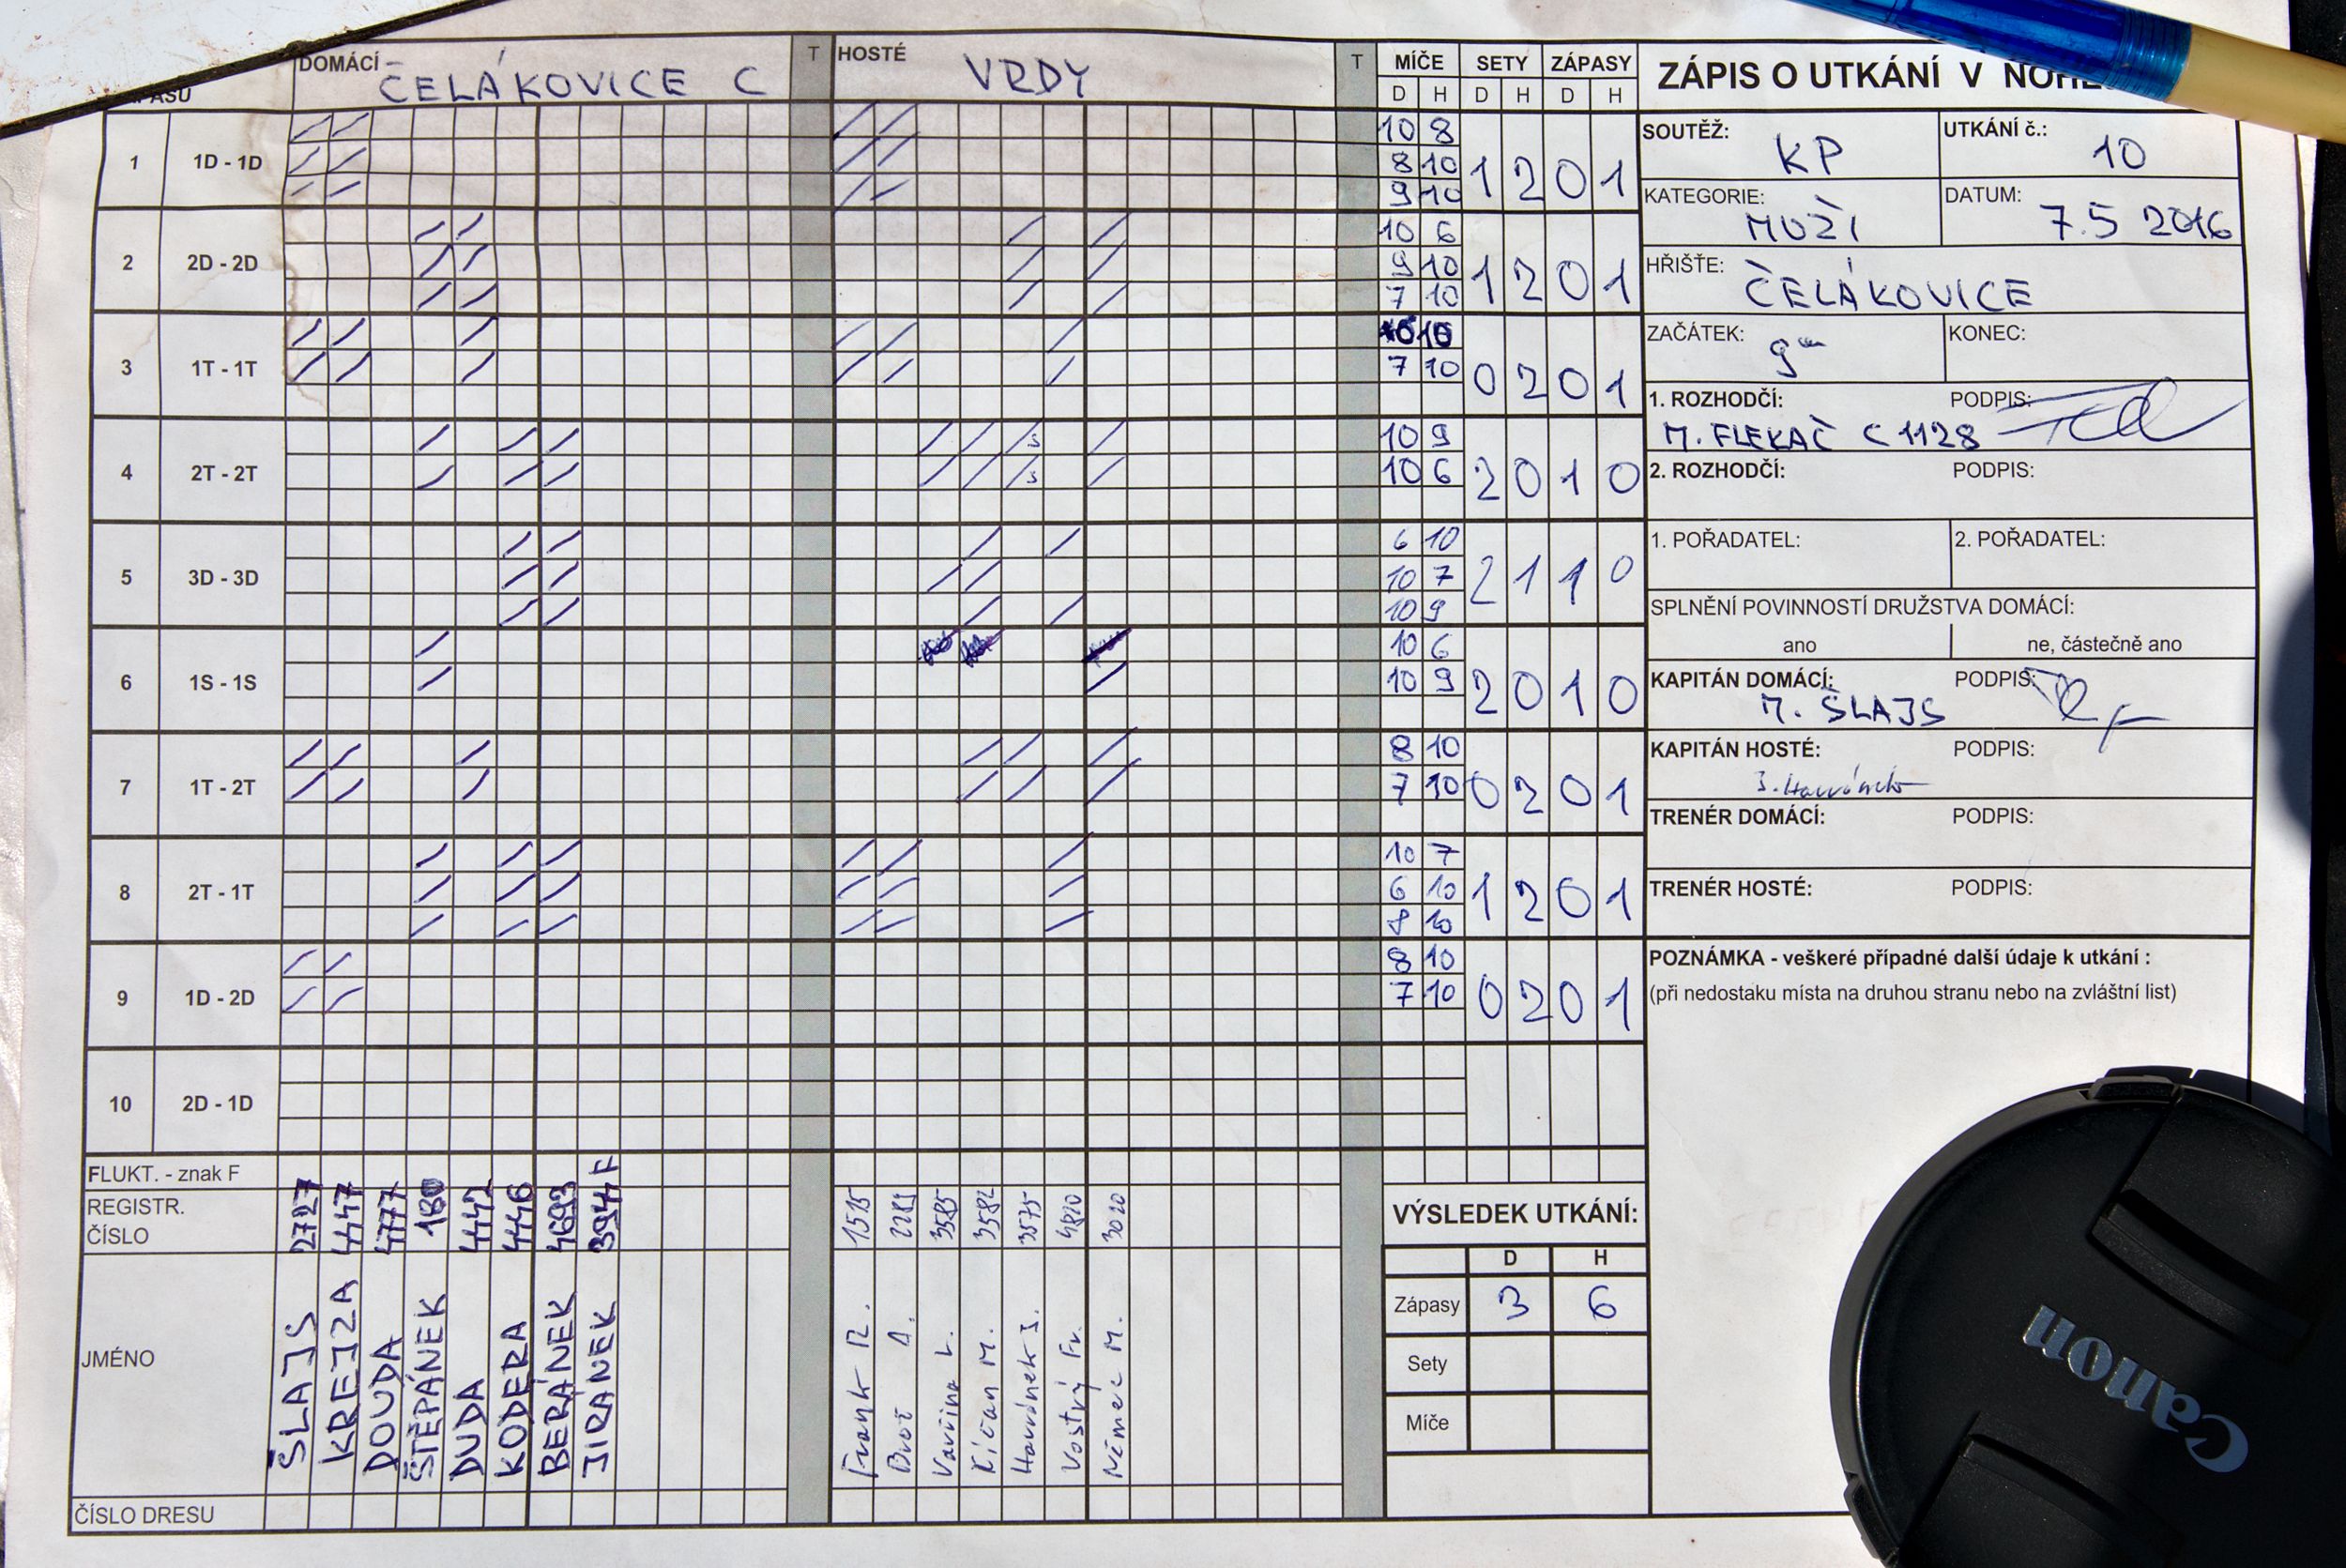 DOMÁCÍ ČELÁKOVICE C T HOSTÉ VRDY T MÍČE SETY ZÁPASY
D H D H D H
ZÁPIS O UTKÁNÍ V
SOUTĚŽ: KP UTKÁNÍ č.: 10
KATEGORIE: MUŽI DATUM: 7.5 2016
HŘIŠTE: ČELÁKOVICE
ZAČÁTEK: 9 KONEC:
1. ROZHODČÍ: PODPIS:
M. FLEKAČ C 1128
2. ROZHODČÍ: PODPIS:
1. POŘADATEL: 2. POŘADATEL:
SPLNĚNÍ POVINNOSTÍ DRUŽSTVA DOMÁCÍ:
ano ne, částečně ano
KAPITÁN DOMÁCÍ: PODPIS:
M. ŠLAJS
KAPITÁN HOSTÉ: PODPIS:
TRENÉR DOMÁCÍ: PODPIS:
TRENÉR HOSTÉ: PODPIS:
POZNÁMKA - veškeré případné další údaje k utkání :
(při nedostaku místa na druhou stranu nebo na zvláštní list)
1 1D - 1D
10 8
8 10
9 10
1 2 0 1
2 2D - 2D
10 6
9 10
7 10
1 2 0 1
3 1T - 1T
7 10
0 2 0 1
4 2T - 2T
10 9
10 6
2 0 1 0
5 3D - 3D
6 10
10 7
10 9
2 1 1 0
6 1S - 1S
10 6
10 9
2 0 1 0
7 1T - 2T
8 10
7 10
0 2 0 1
8 2T - 1T
10 7
6 10
8 10
1 2 0 1
9 1D - 2D
8 10
7 10
0 2 0 1
10 2D - 1D
FLUKT. - znak F
REGISTR.
ČÍSLO
2727
4447
4777
180
4442
4446
4693
3944 F
1515
3585
3582
3575
4820
3020
JMÉNO
ŠLAJS
KREJZA
DOUDA
ŠTĚPÁNEK
DUDA
KODERA
BERÁNEK
JIRANEK
Frank R.
Vavřina L.
Kičan M.
Havránek J.
Vostrý Fr.
Němec M.
ČÍSLO DRESU
VÝSLEDEK UTKÁNÍ:
D H
Zápasy 3 6
Sety
Míče
Canon